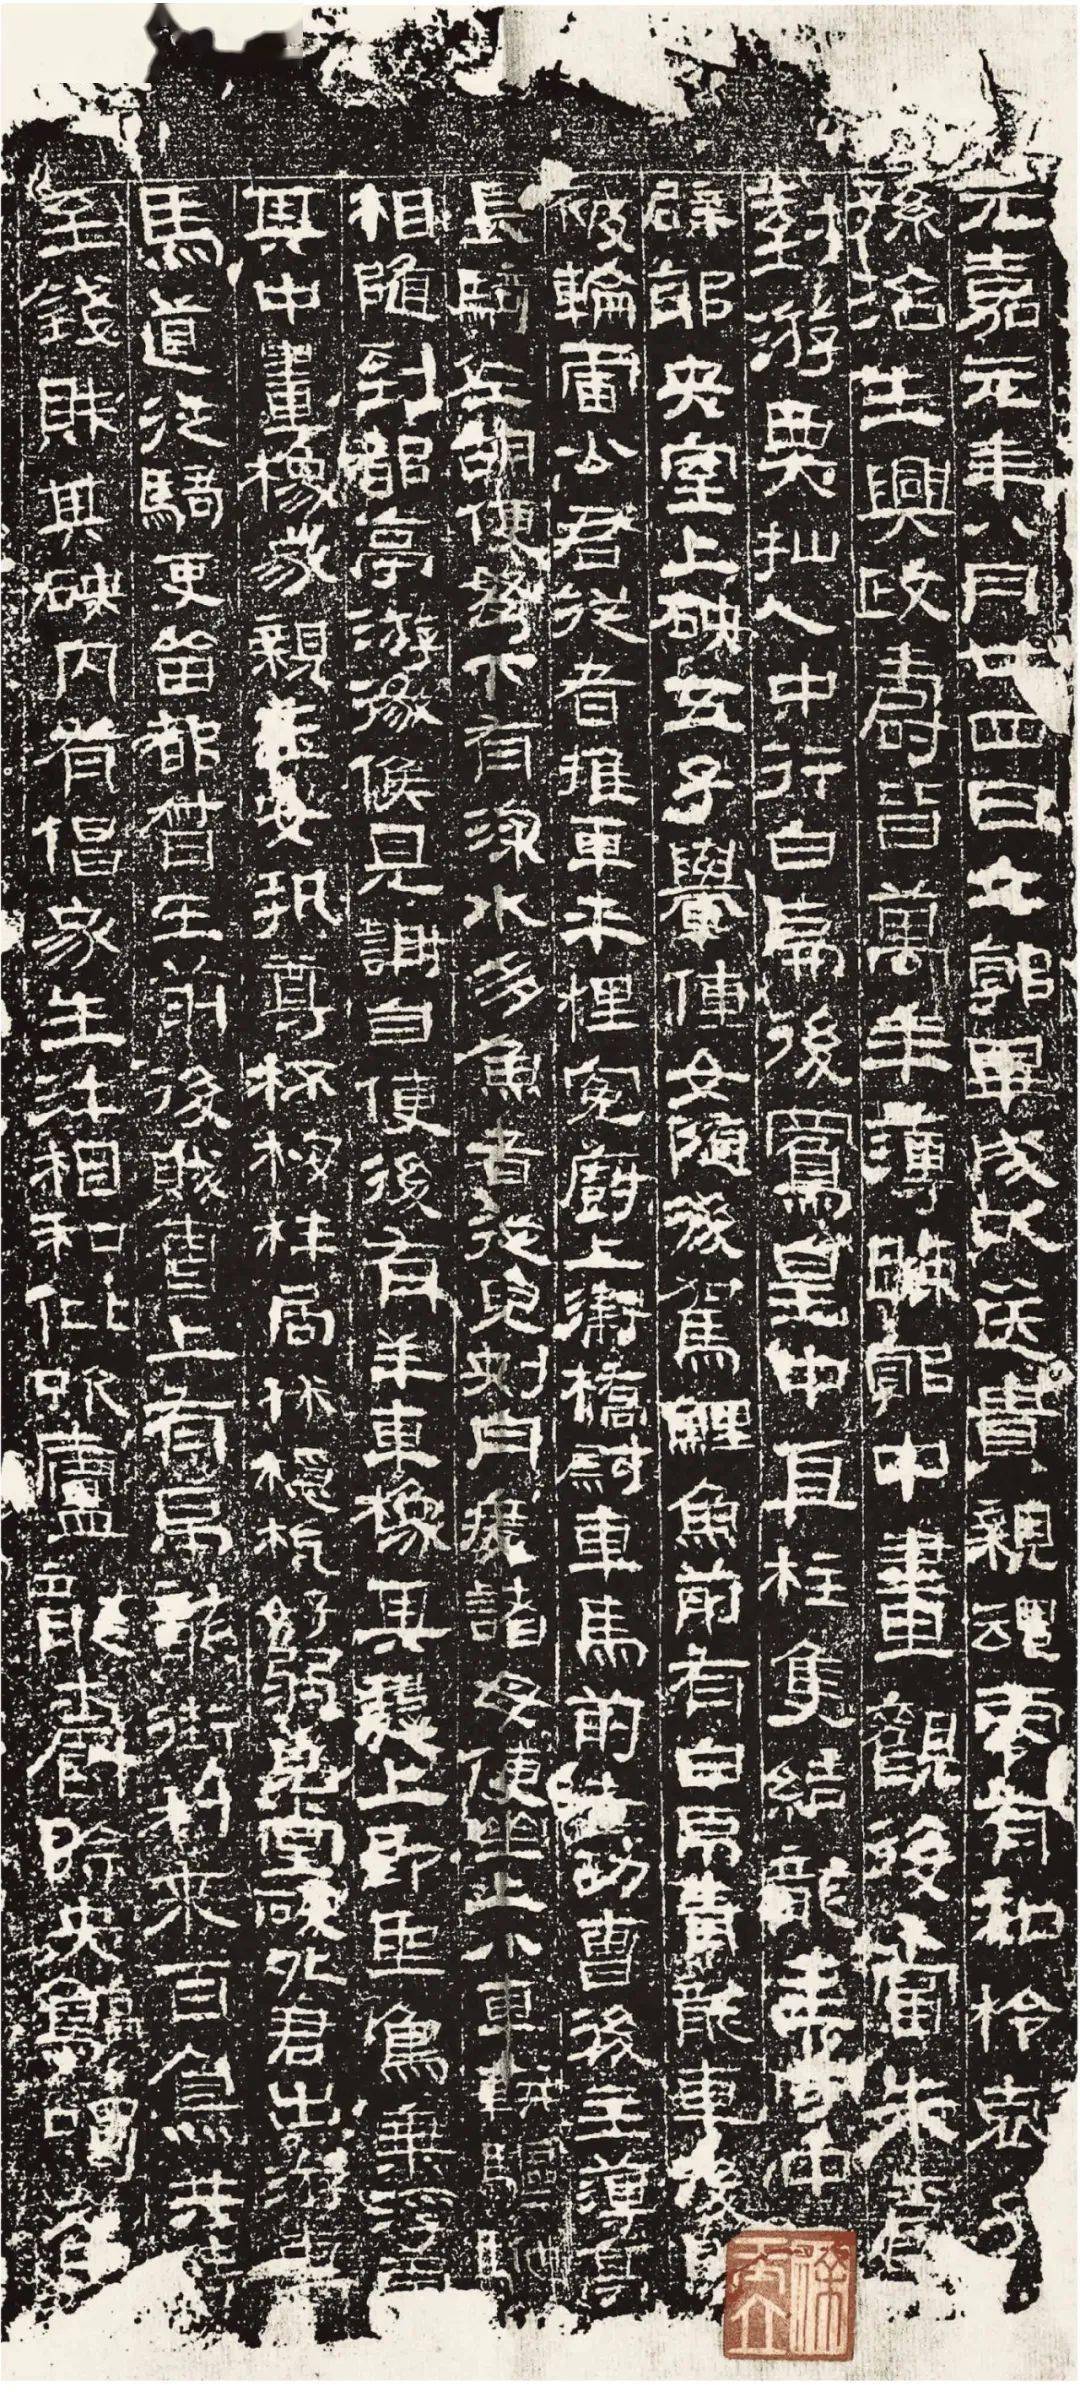 元嘉元年八月廿四日立郭畢成以送貴親魂零有知柃哀子
孫治生興政壽皆萬年薄踈郭中畫觀後當朱爵
對游戲仙人中行白虎後鳳皇中直柱隻結龍主守中霤
辟邪央室上硤五子轝僮女隨後駕鯉魚前有白虎青龍車後即
被輪雷公君從者推車平理冤廚上衛橋尉車馬前者功曹後主簿亭
長騎佐胡使弩下有深水多魚者從兒刺舟渡諸母使坐上小車軿驅馳
相隨到都亭游徼候見謝自便後有羊車橡其槥上即聖鳥乘浮雲
其中畫橡家親玉女執尊杯桉柈局秫穩杭好弱皃堂硤外君出游車
馬道從騎吏留都督在前後賊曹上有虎龍銜利來百鳥共侍
至錢財其硤內有倡家生汙相和仳吹廬龍爵除央鶴噣魚